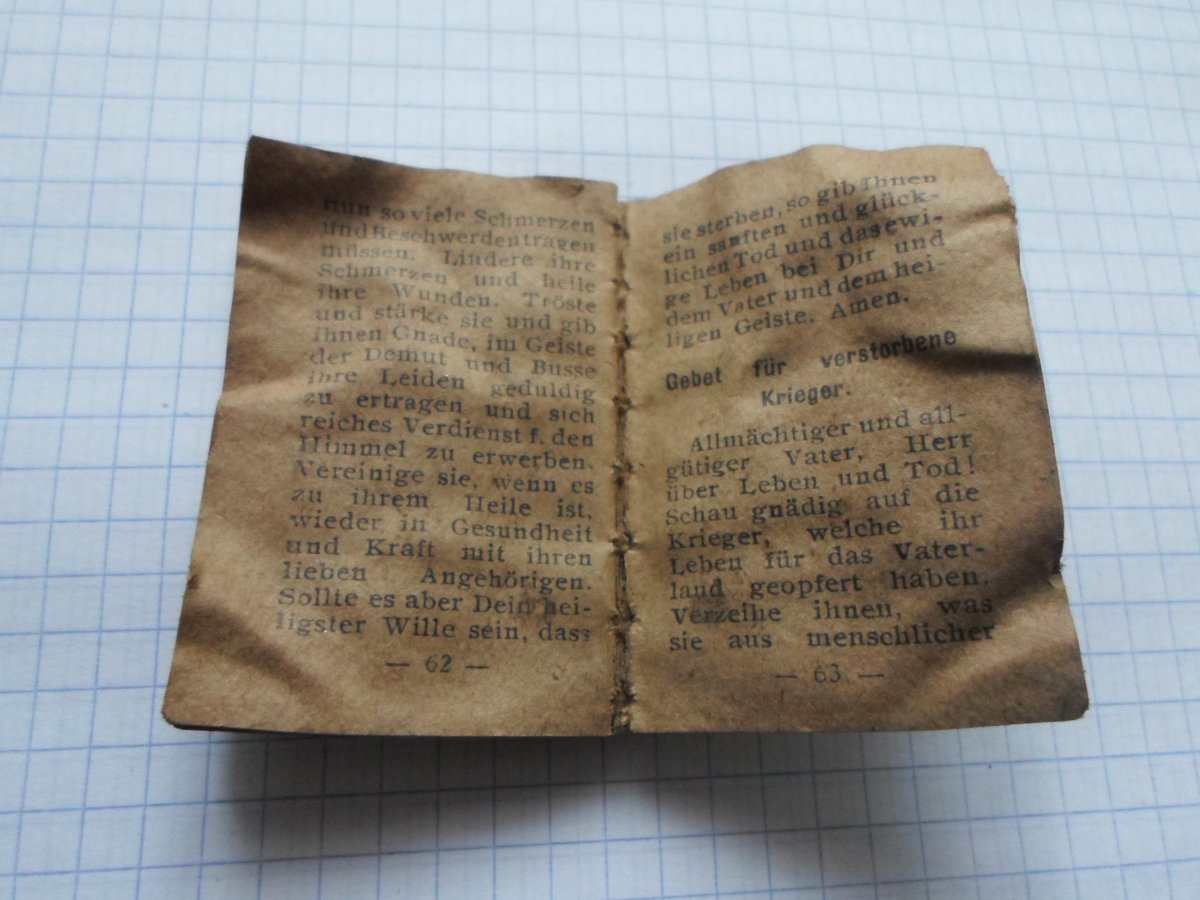 nun so viele Schmerzen
und Beschwerden tragen
müssen. Lindere ihre
Schmerzen und heile
ihre Wunden. Tröste
und stärke sie und gib
ihnen Gnade, im Geiste
der Demut und Busse
ihre Leiden geduldig
zu ertragen und sich
reiches Verdienst f. den
Himmel zu erwerben.
Vereinige sie, wenn es
zu ihrem Heile ist,
wieder in Gesundheit
und Kraft mit ihren
lieben Angehörigen.
Sollte es aber Dein hei-
ligster Wille sein, dass
— 62 —
sie sterben, so gib Ihnen
ein sanften und glück-
lichen Tod und das ewi-
ge Leben bei Dir und
dem Vater und dem hei-
ligen Geiste. Amen.
Gebet für verstorbene
Krieger.
Allmächtiger und all-
gütiger Vater, Herr
über Leben und Tod!
Schau gnädig auf die
Krieger, welche ihr
Leben für das Vater-
land geopfert haben.
Verzeihe ihnen, was
sie aus menschlicher
— 63 —